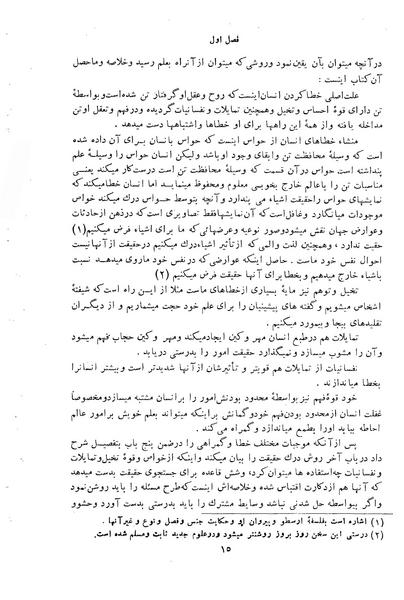 فصل اول
درآنچه میتوان بآن یقین نمود وروشی که میتوان از آنراه بعلم رسید وخلاصه وماحصل
آن کتاب اینست :
علت اصلی خطا کردن انسان اینست که روح وعقل اوگرفتار تن شده است وبواسطهٔ
تن دارای قوهٔ احساس وتخیل وهمچنین تمایلات ونفسانیات گردیده ودرفهم وتعقل اوتن
مداخله یافته واز همهٔ این راهها برای او خطاها واشتباهها دست میدهد .
منشاء خطاهای انسان از حواس اینست که حواس بانسان برای آن داده شده
است که وسیلهٔ محافظت تن وابقای وجود اوباشد ولیکن انسان حواس را وسیلهٔ علم
پنداشته است حواس درآن قسمت که وسیلهٔ محافظت تن است درست کار میکند یعنی
مناسبات تن را باعالم خارج بخوبی معلوم ومحفوظ مینماید اما انسان خطا میکند که
نمایشهای حواس راحقیقت اشیاء می پندارد وآنچه بتوسط حواس درك میکند خواص
موجودات میانگارد وغافل است که آن نمایشها فقط تصاویری است که درذهن ازحادثات
وعوارض جهان نقش میشود وصور نوعیه وعرضهائی که ما برای اشیاء فرض میکنیم (۱)
حقیت ندارد ، وهمچنین لذت والمی که ازتأثیر اشیاء درك میکنیم درحقیقت ازآنها نیست
احوال نفس خود ماست . حاصل اینکه عوارضی که درنفس خود ماروی میدهد نسبت
باشیاء خارج میدهیم وبخطا برای آنها حقیقت فرض میکنیم (۲)
تخیل وتوهم نیز مایهٔ بسیاری ازخطاهای ماست مثلا از این راه است که شیفتهٔ
اشخاص میشویم وگفته های پیشینیان را برای علم خود حجت میشماریم و از دیگران
تقلیدهای بیجا وبیمورد میکنیم .
تمایلات هم درطبع انسان مهر وکین ایجاد میکند ومهر وکین حجاب فهم میشود
وآن را مشوب میسازد ونمیگذارد حقیقت امور را بدرستی دریابد .
نفسانیات از تمایلات هم قویتر و تأثیرشان ازآنها شدیدتر است وبیشتر انسانرا
بخطا میاندازند .
خود قوهٔ فهم نیز بواسطهٔ محدود بودنش امور را برانسان مشتبه میسازد ومخصوصاً
غفلت انسان ازمحدود بودن فهم خود وگمانش براینکه میتواند بعلم خویش برامور عالم
احاطه بیابد اورا بطمع میاندازد وگمراه می کند .
پس ازآنکه موجبات مختلف خطا وگمراهی را درضمن پنج باب بتفصیل شرح
داد درباب آخر روش درك حقیقت را بیان میکند واینکه ازخواص وقوهٔ تخیل وتمایلات
ونفسانیات چه استفاده ها میتوان کرد، وشش قاعده برای جستجوی حقیقت بدست میدهد
که آنها هم از دکارت اقتباس شده وخلاصه اش اینست که طرح مسئله را باید روشن نمود
واگر بیواسطه حل شدنی نباشد وسایط مشترك را باید بدرستی بدست آورد وحشوو
(۱) اشاره است بفلسفهٔ ارسطو وپیروان او وحکایت جنس وفصل ونوع و غیر آنها .
(۲) درستی این سخن روز بروز روشنتر میشود ودرعلوم جدید ثابت ومسلم شده است .
۱۵